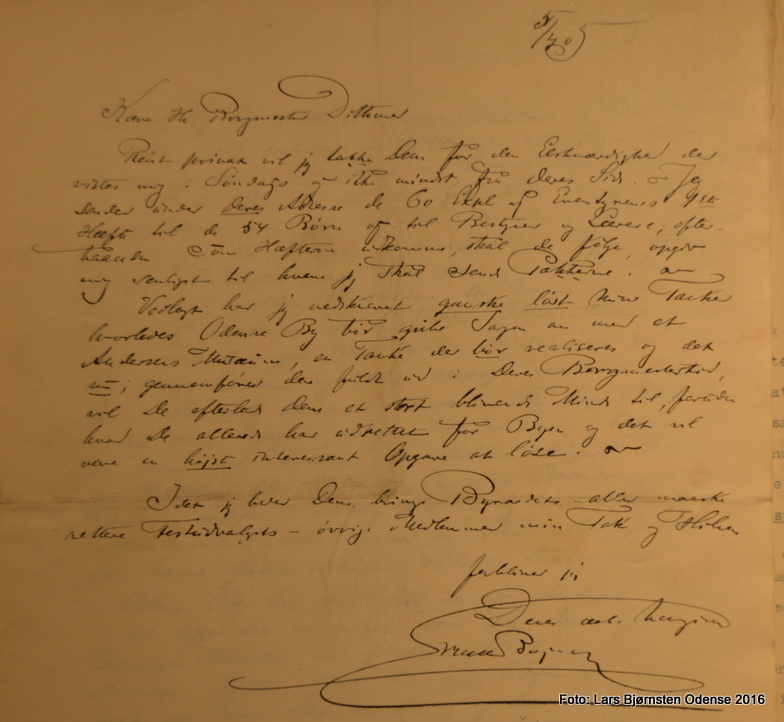 5/4 05
Kære Hr Borgmester Dithmer
Rent privat vil jeg takke Dem for den Elskværdighed der
vistes mig i Søndags og ikke mindst fra Deres Side. Jeg
sender under Deres Adresse de 60 Expl af Eventyrenes 1ste
Hæfte til de 54 Børn og til Bestyrer og Lærere, efter-
haanden som Hæfterne udkomme, skal de følge, opgiv
mig venligst til hvem jeg skal sende Pakkerne.
Vedlagt har jeg nedskrevet ganske løst mine Tanker
hvorledes Odense By bør gribe Sagen an med et
Andersens Museum, en Tanke der bør realiseres og det
nu; gennemføres den fuldt ud i Deres Borgmestertid,
vil De efterlade Dem et stort blivende Minde til, foruden
hvad De allerede har udrettet for Byen og det vil
være en højst interessant Opgave at løse.
Idet jeg beder Dem bringe Byraadets - eller maaske
rettere Festudvalgets - øvrige Medlemmer min Tak og Hilsen
forbliver jeg
Deres ærb. hengivne
Foto: Lars Bjørnsten Odense 2016